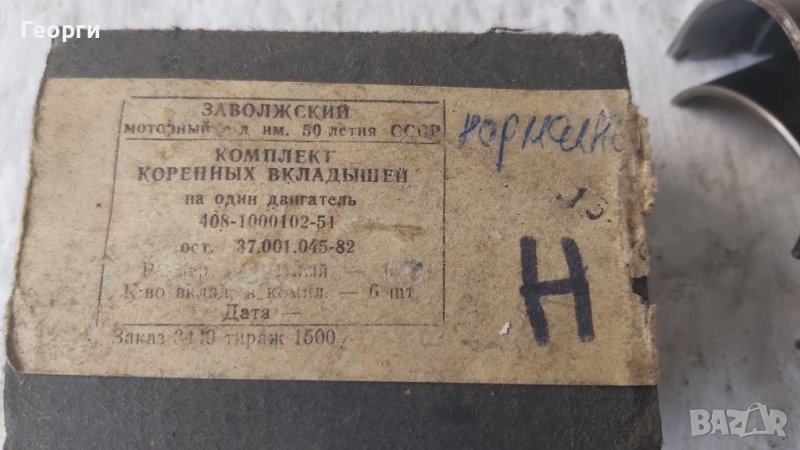 Георги
ЗАВОЛЖСКИЙ
моторный им. 50 летия СССР
КОМПЛЕКТ
КОРЕННЫХ ВКЛАДЫШЕЙ
на один двигатель
408-1000102-51
ост. 37.001.045-82
Размер —
К-во вклад. в компл. — 6 шт.
Дата —
Заказ 3449 тираж 1500
Н
BAZAR